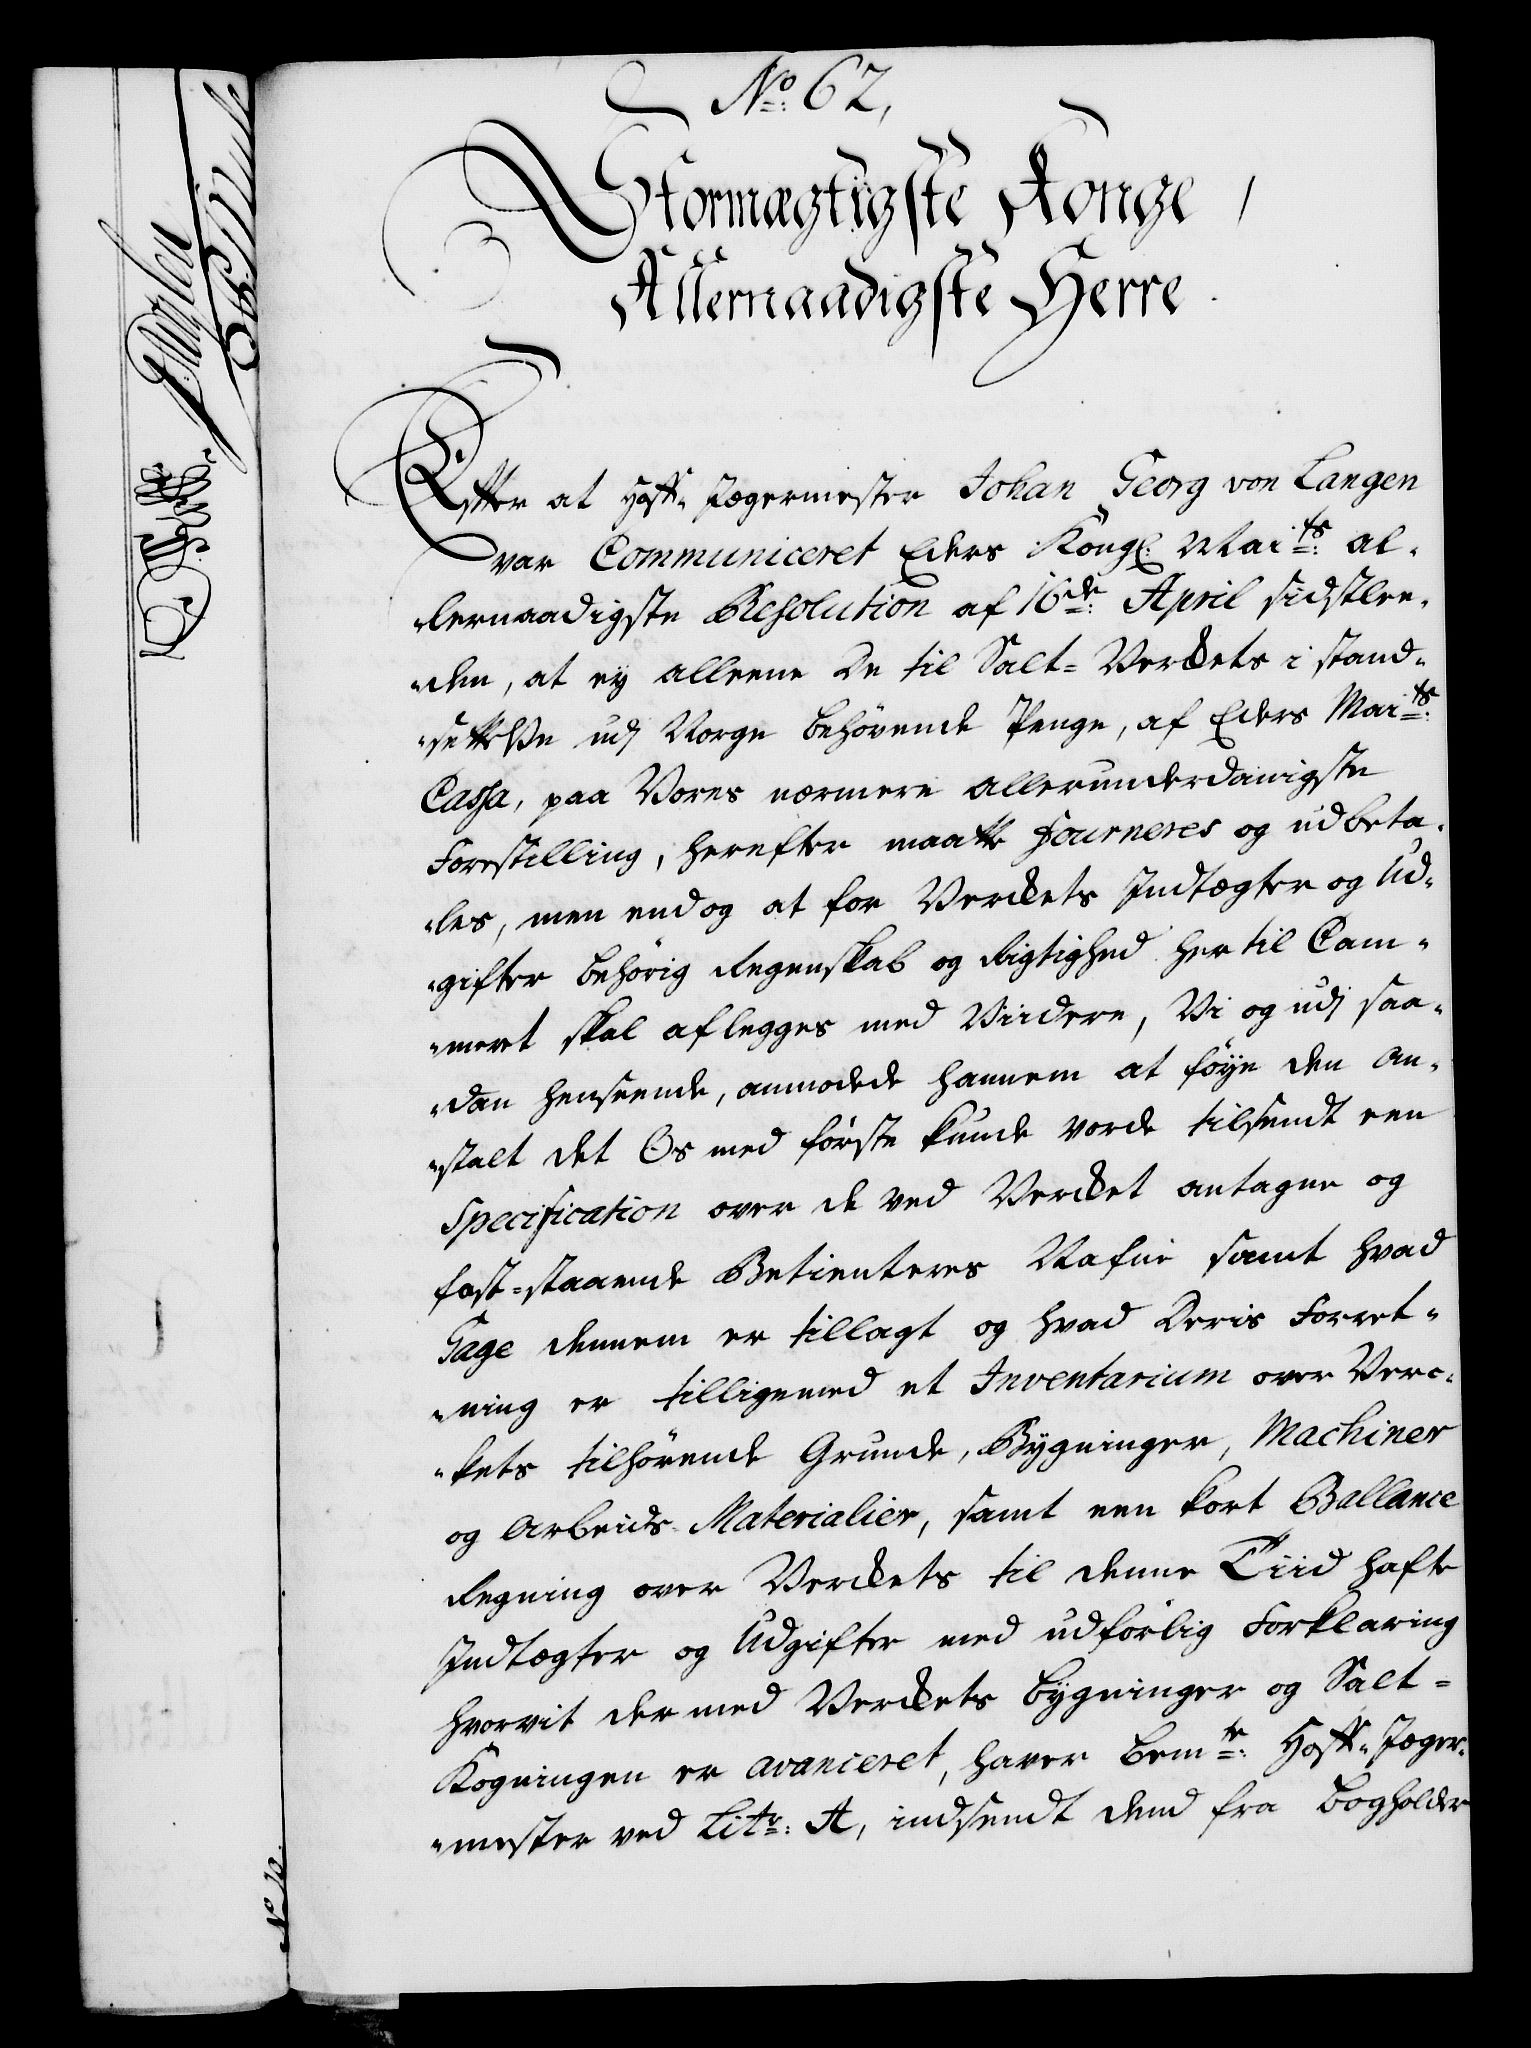 No: 62,
Stormægtigste Konge,
Allernaadigste Herre.
Efter at Hoff-Jægermester Johan Georg von Langen
var Communiceret Eders Kongl: Maits: al-
lernaadigste Resolution af 16de: April sidstlee-
den, at ey alleene De til Salt-Verckets i stand-
settelse udj Norge behövende Penge, af Eders Maits:
Cassa, paa Vores nærmere allerunderdanigste
Forestilling, herefter maatte Fourneres og udbeta-
les, men endog at for Verckets Indtægter og Ud-
gifter behörig Regenskab og Rigtighed her til Cam-
meret skal aflegges med Viidere, Vi og udj saa-
dan henseende, anmodede hannem at föye den an-
stalt det Os med förste kunde vorde tilsendt een
Specification over de ved Vercket antagne og
fast-staaende Betienteres Nafne samt hvad
Gage dennem er tillagt og hvad Deris Forret-
ning er tilligemed et Inventarium over Verc-
kets tilhörende Grunde, Bygninger, Machiner
og Arbeids-Materialier, samt een kort Ballance
Regning over Verckets til denne Tiid hafte
Indtægter og Udgifter med udförlig Forklaring
hvorvit der med Verckets bygninger og Salt-
Kogningen er avanceret, haver bemte: Hoff-Jæger-
mester ved Litr: A, indsendt dend fra Bogholder
No 10.